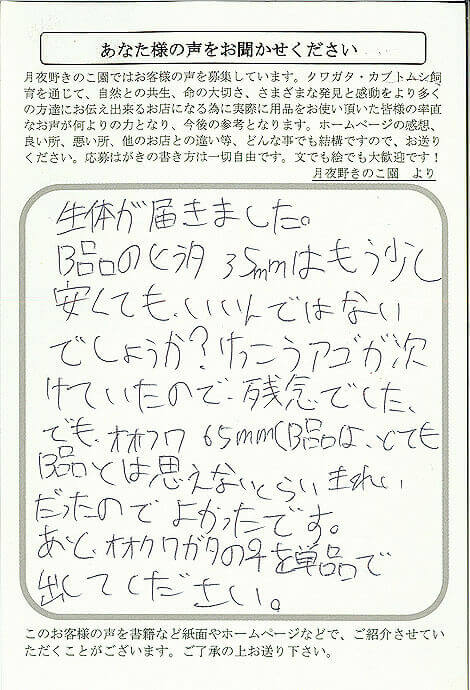 あなた様の声をお聞かせください
月夜野きのこ園ではお客様の声を募集しています。クワガタ・カブトムシ飼
育を通じて、自然との共生、命の大切さ、さまざまな発見と感動をより多く
の方達にお伝え出来るお店になる為に実際に用品をお使い頂いた皆様の率直
なお声が何よりの力となり、今後の参考となります。ホームページの感想、
良い所、悪い所、他のお店との違い等、どんな事でも結構ですので、お送り
ください。応募はがきの書き方は一切自由です。文でも絵でも大歓迎です！
月夜野きのこ園　より
生体が届きました。
B品のヒラタ 35mmはもう少し
安くても、いいんではない
でしょうか？けっこうアゴが欠
けていたので、残念でした、
でも、オオクワ 65mm(B品は、とても
B品とは思えないくらい きれい
だったので よかったです。
あと、オオクワガタの♀を単品で
出してください。
このお客様の声を書籍など紙面やホームページなどで、ご紹介させてい
ただくことがございます。ご了承の上お送り下さい。